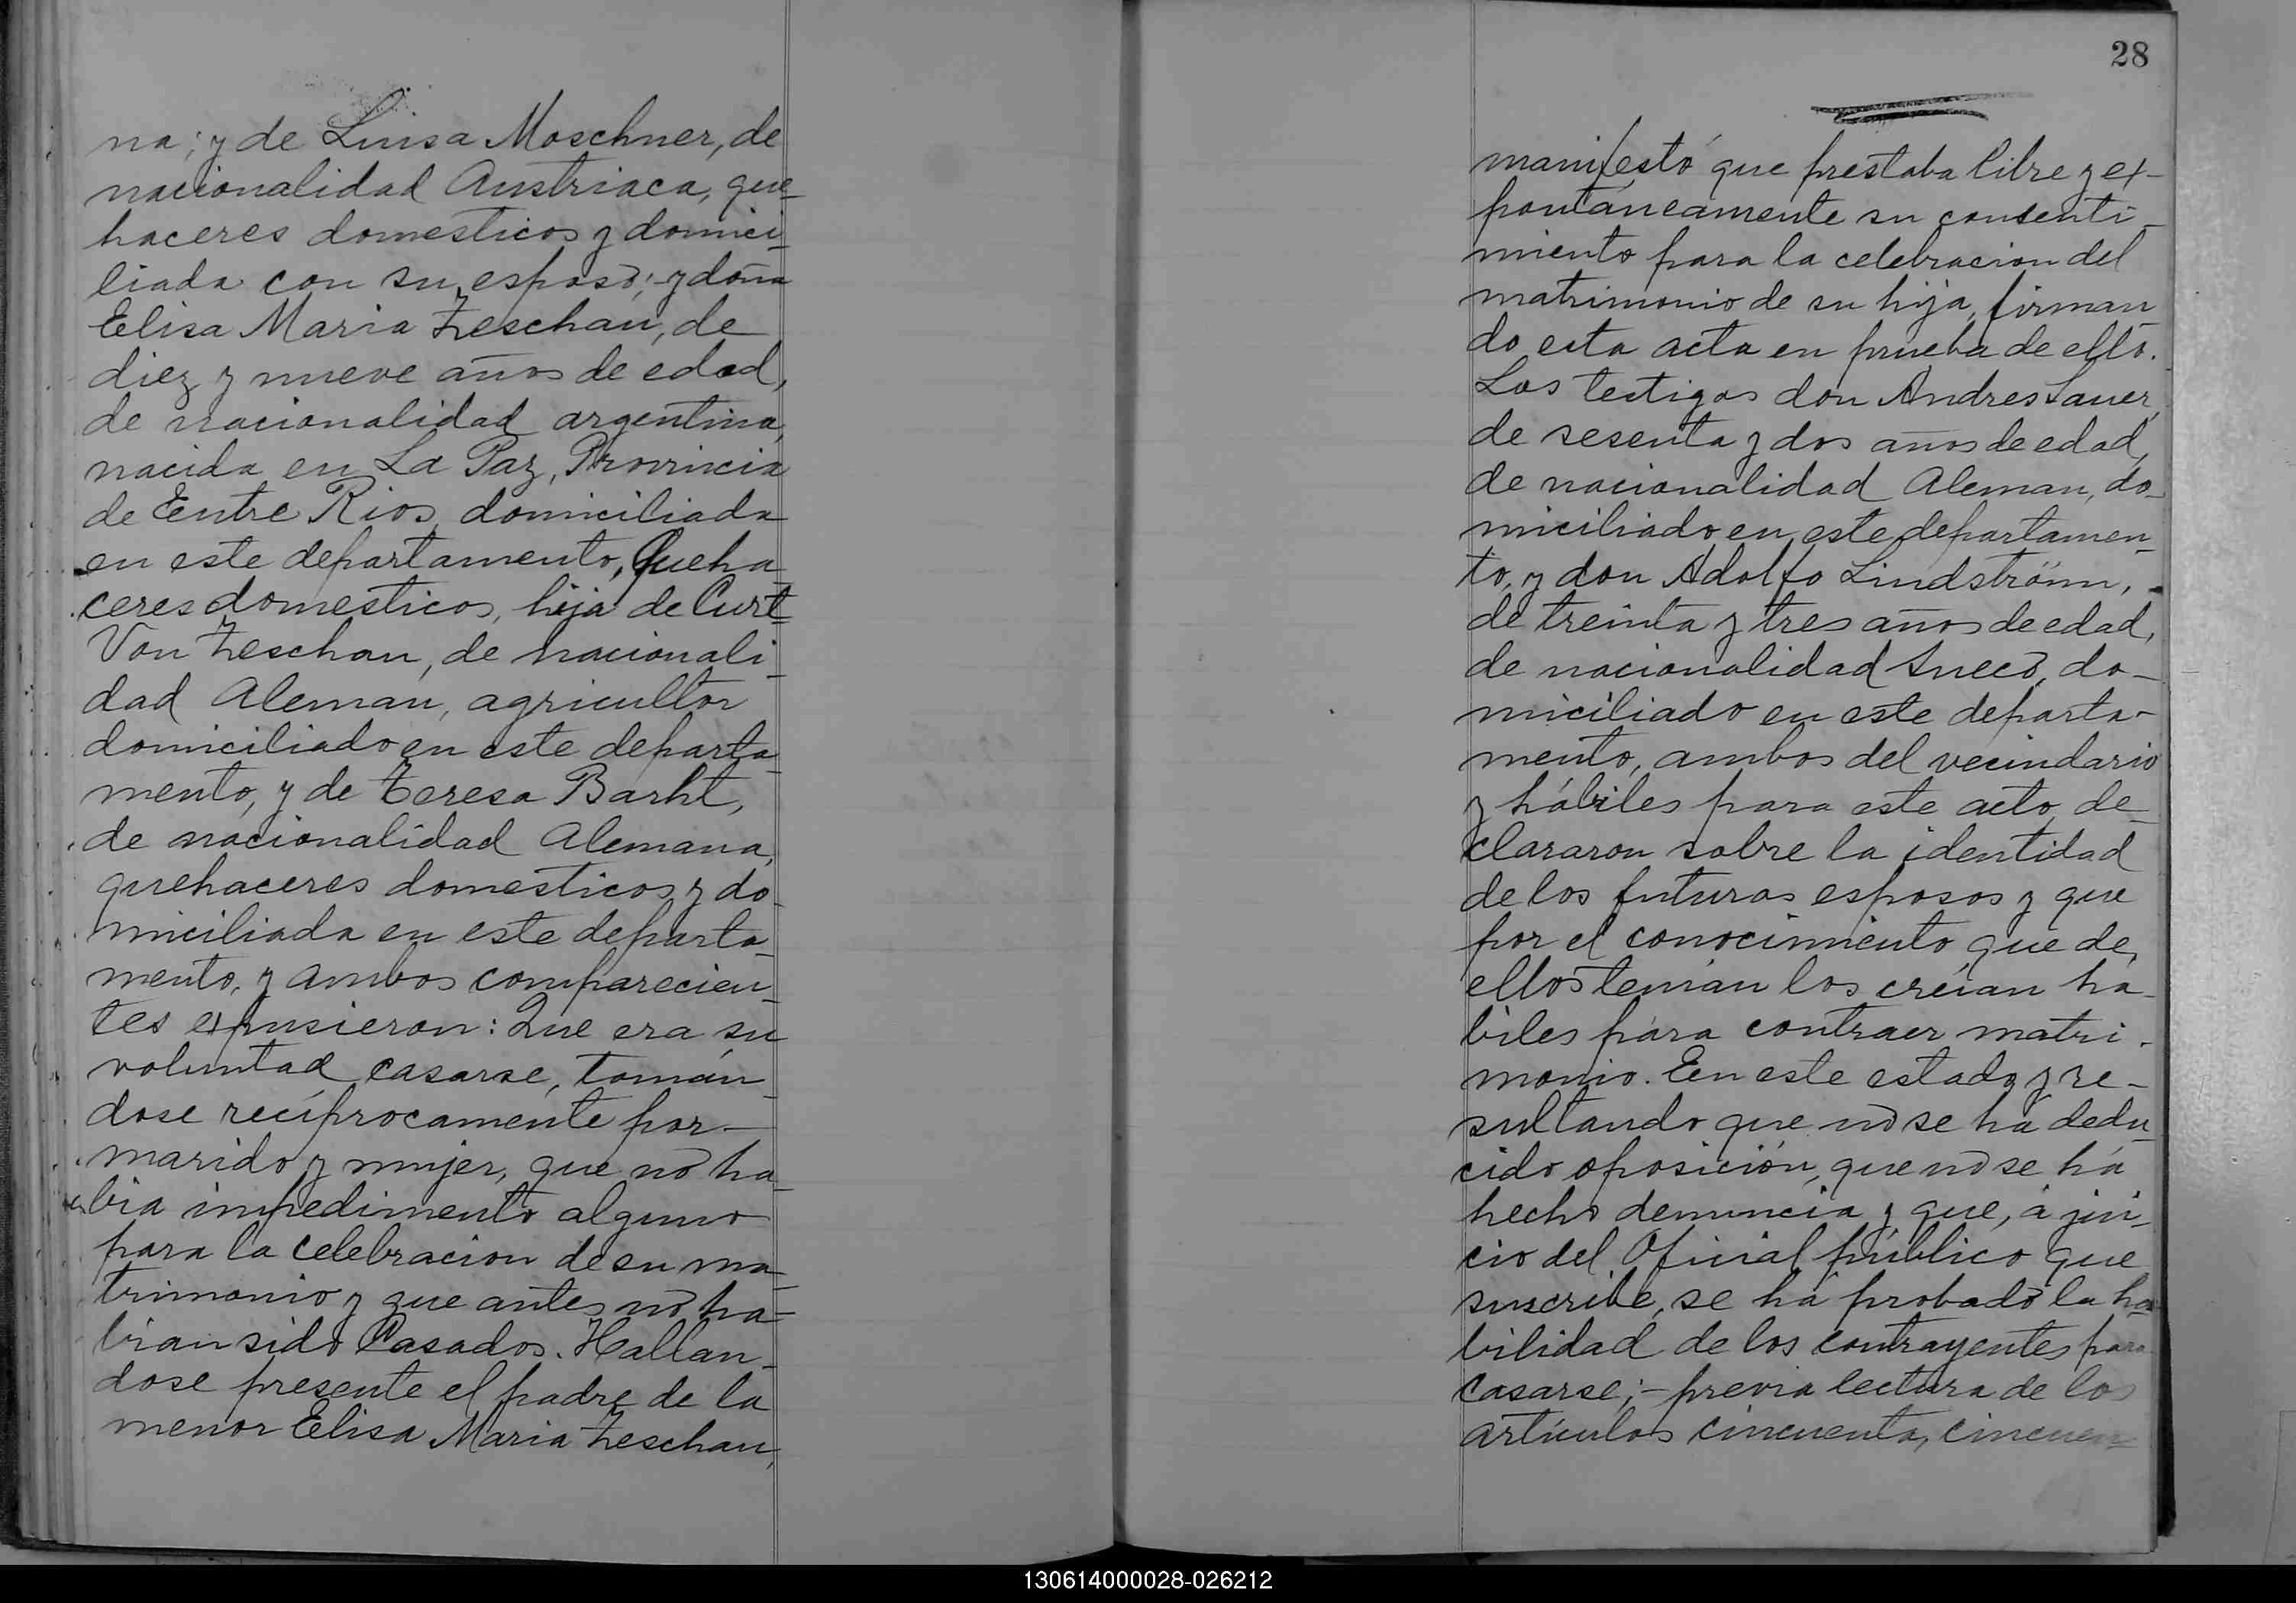 na; y de Luisa Moschner, de
nacionalidad Austriaca, que-
haceres domesticos y domici-
liada con su esposo; - y doña
Elisa Maria Zeschau, de
diez y nueve años de edad,
de nacionalidad argentina,
nacida en La Paz, Provincia
de Entre Rios, domiciliada
en este departamento, Queha-
ceres domesticos, hija de Curt
Von Zeschau, de nacionali-
dad Aleman, agricultor
domiciliado en este departa-
mento, y de Teresa Barht,
de nacionalidad Alemana,
quehaceres domesticos y do-
miciliada en este departa-
mento, y ambos comparecien-
tes expusieron: Que era su
voluntad casarse, tomán-
dose recíprocamente por -
marido y mujer, que nó ha-
bia impedimento alguno
para la celebracion de su ma-
trimonio y que antes nó ha-
bian sido Casados. Hallan-
dose presente el padre de la
menor Elisa Maria Zeschau,
28
manifestó que prestaba libre y ex-
pontáneamente su consenti-
miento para la celebracion del
matrimonio de su hija, firman-
do esta acta en prueba de ello.
Los testigos don Andres Sauer,
de sesenta y dos años de edad,
de nacionalidad Aleman, do-
miciliado en este departamen-
to, y don Adolfo Lindström, -
de treinta y tres años de edad,
de nacionalidad Sueco, do-
miciliado en este departa-
mento, ambos del vecindario
y hábiles para este acto, de-
clararon sobre la identidad
de los futuros esposos y que
por el conocimiento que de
ellos tenían los creían há-
biles para contraer matri-
monio. En este estado y re-
sultando que nó se há dedu-
cido oposición, que nó se há
hecho denuncia y que, á jui-
cio del Oficial público que
suscribe, se há probado la ha-
bilidad de los contrayentes para
casarse; - previa lectura de los
artículos cincuenta, cincuen-
130614000028-026212